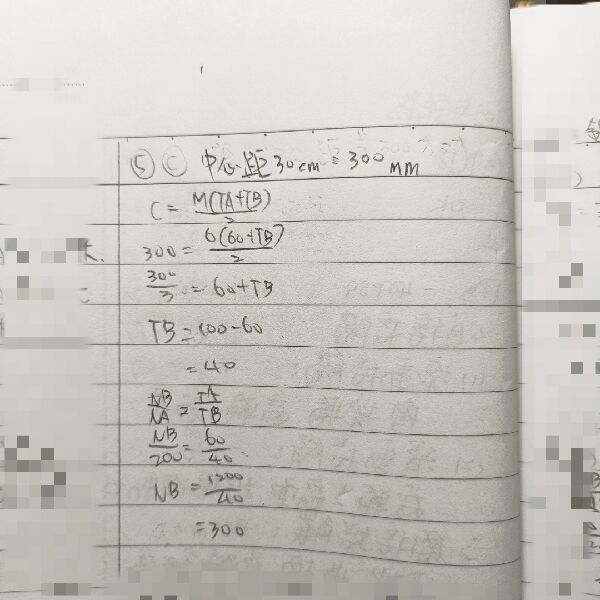 ⑤ ⓒ 中心距30cm = 300mm
C = M(TA+TB)/2
300 = 6(60+TB)/2
300/3 = 60+TB
TB = 100-60
= 40
NB/NA = TA/TB
NB/200 = 60/40
NB = 1200/40
= 300